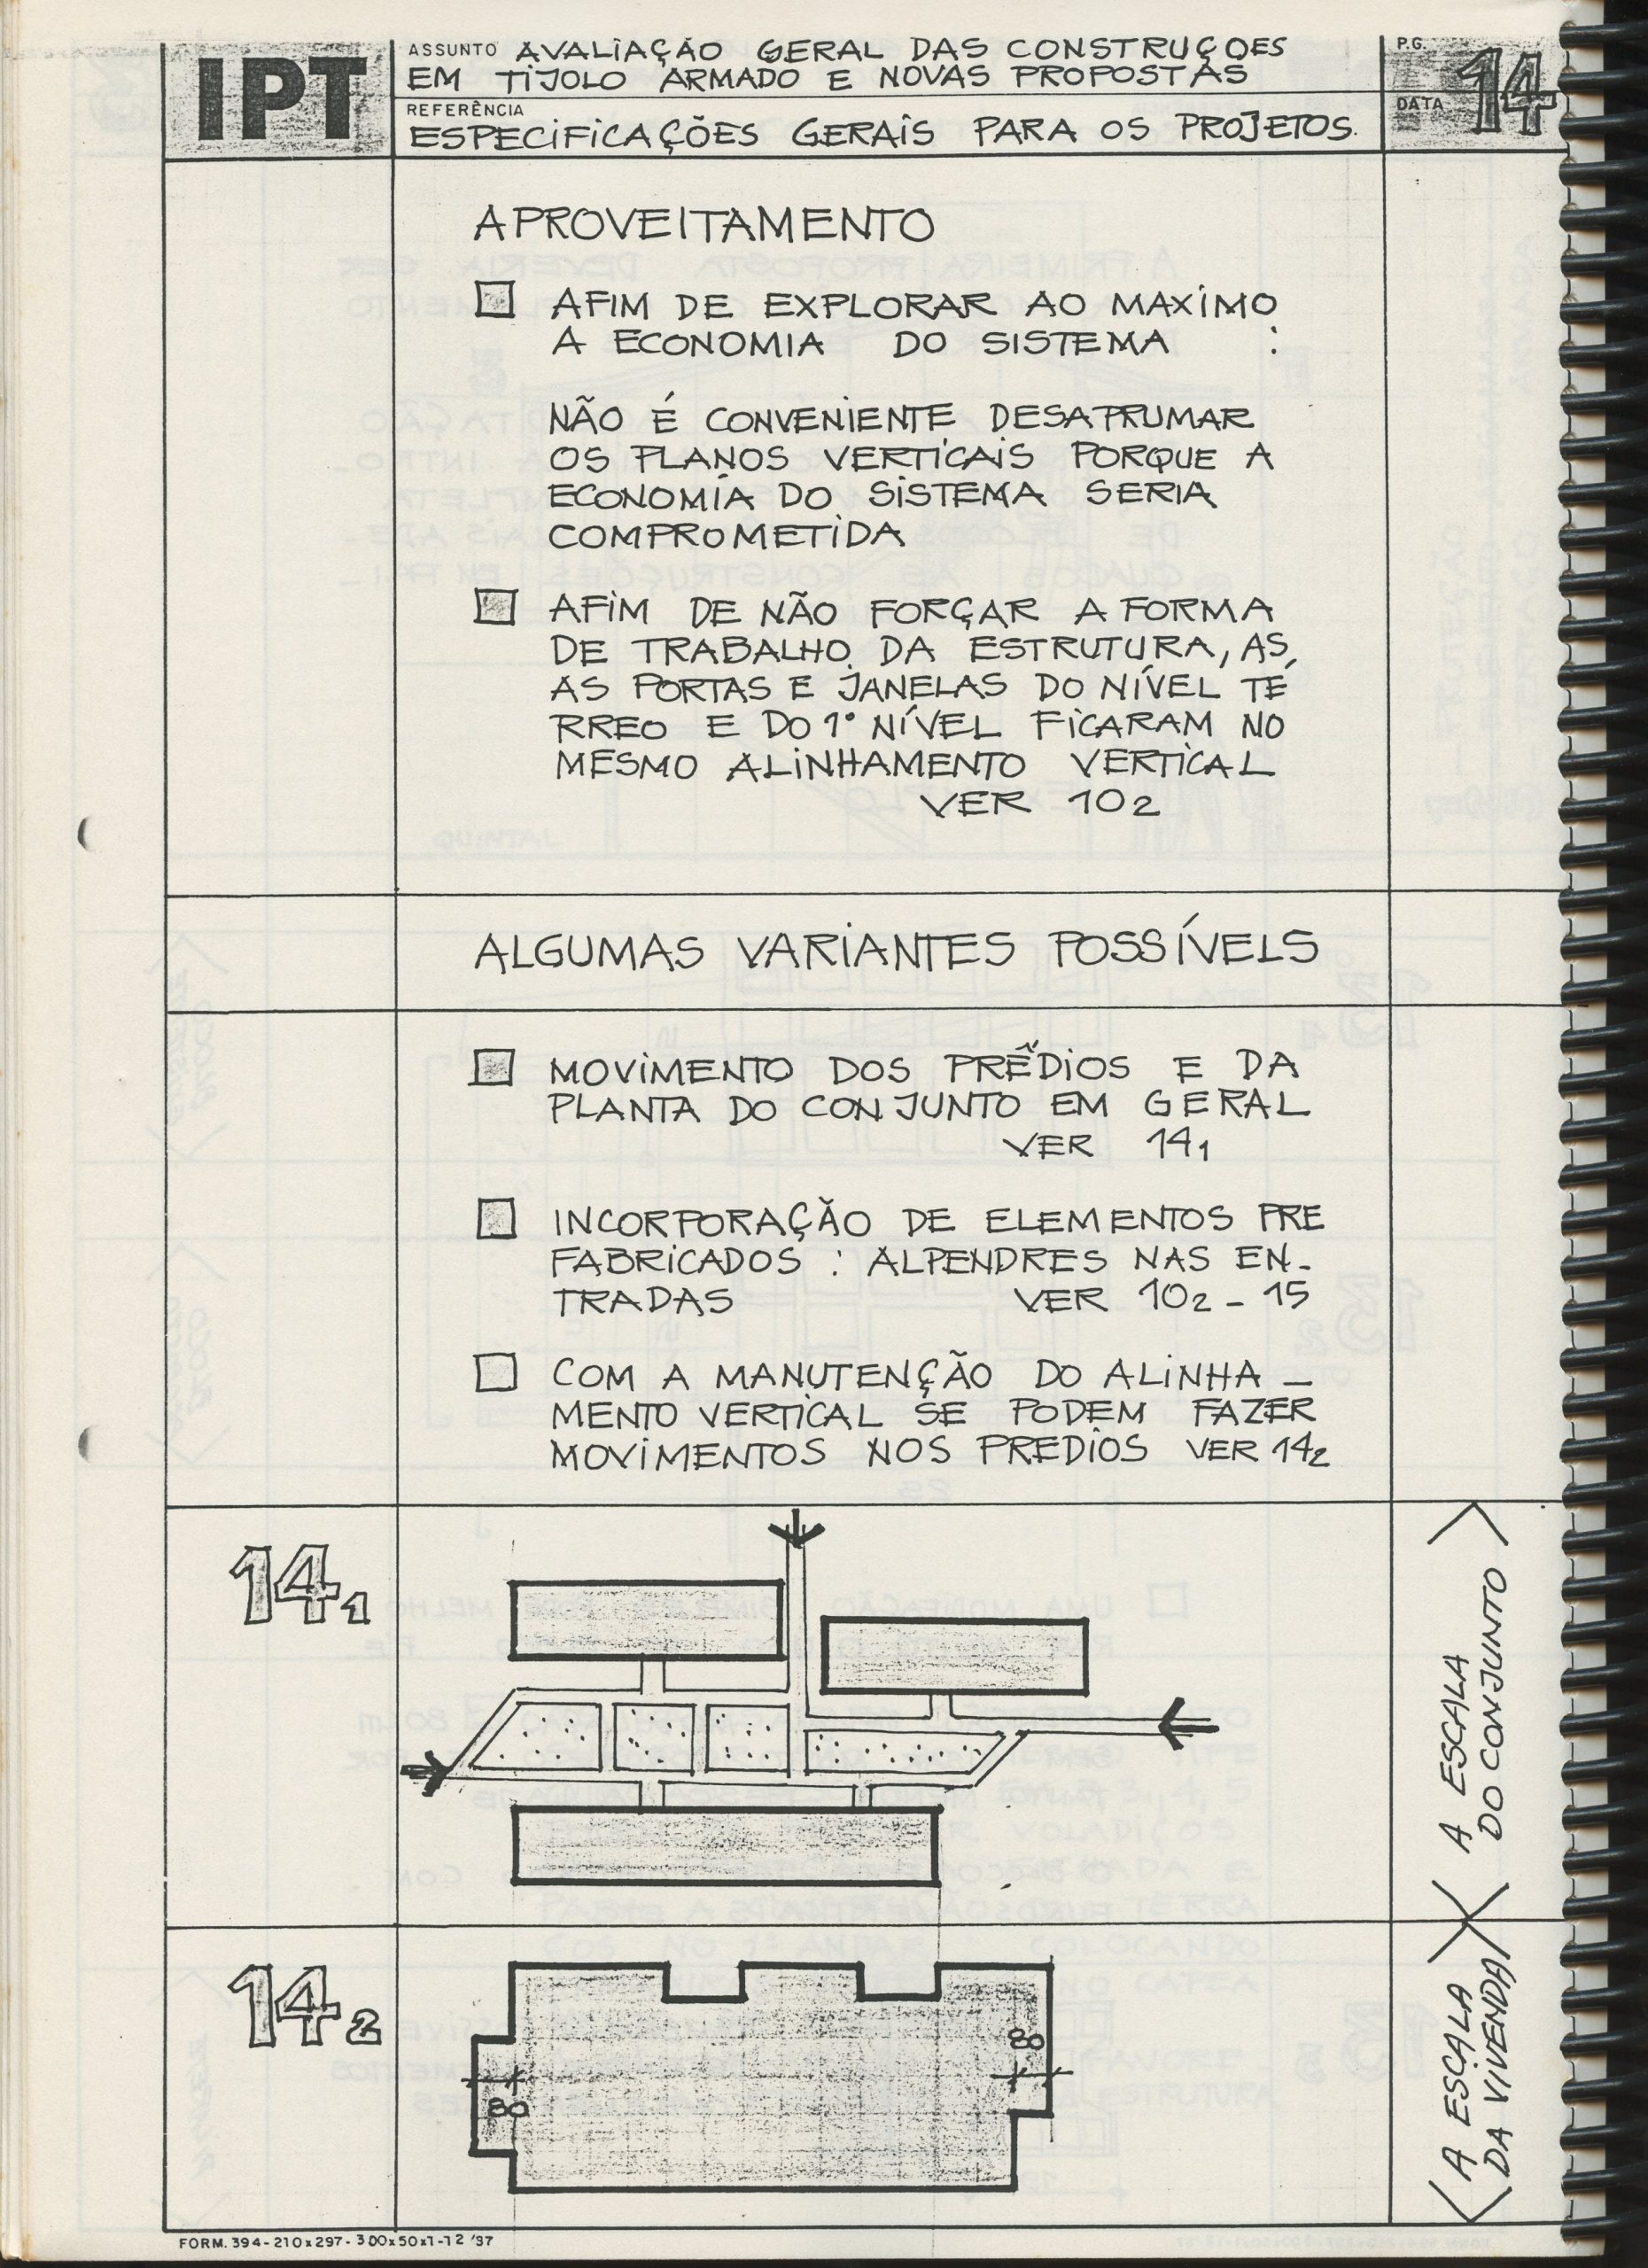 IPT
ASSUNTO AVALIAÇÃO GERAL DAS CONSTRUÇOES
EM TIJOLO ARMADO E NOVAS PROPOSTAS
REFERÊNCIA
ESPECIFICAÇÕES GERAIS PARA OS PROJETOS.
P.G.
DATA
14
APROVEITAMENTO
AFIM DE EXPLORAR AO MAXIMO
A ECONOMIA DO SISTEMA :
NÃO É CONVENIENTE DESAPRUMAR
OS PLANOS VERTICAIS PORQUE A
ECONOMIA DO SISTEMA SERIA
COMPROMETIDA
AFIM DE NÃO FORÇAR A FORMA
DE TRABALHO DA ESTRUTURA, AS
AS PORTAS E JANELAS DO NÍVEL TÉ
RREO E DO 1° NÍVEL FICARAM NO
MESMO ALINHAMENTO VERTICAL
VER 10₂
ALGUMAS VARIANTES POSSÍVELS
MOVIMENTO DOS PRÉDIOS E DA
PLANTA DO CONJUNTO EM GERAL
VER 14₁
INCORPORAÇÃO DE ELEMENTOS PRE
FABRICADOS : ALPENDRES NAS EN-
TRADAS VER 10₂ - 15
COM A MANUTENÇÃO DO ALINHA-
MENTO VERTICAL SE PODEM FAZER
MOVIMENTOS NOS PREDIOS VER 14₂
14₁
A ESCALA
DO CONJUNTO
14₂
80
80
A ESCALA
DA VIVENDA
FORM. 394-210x297-300x50x1-12'87